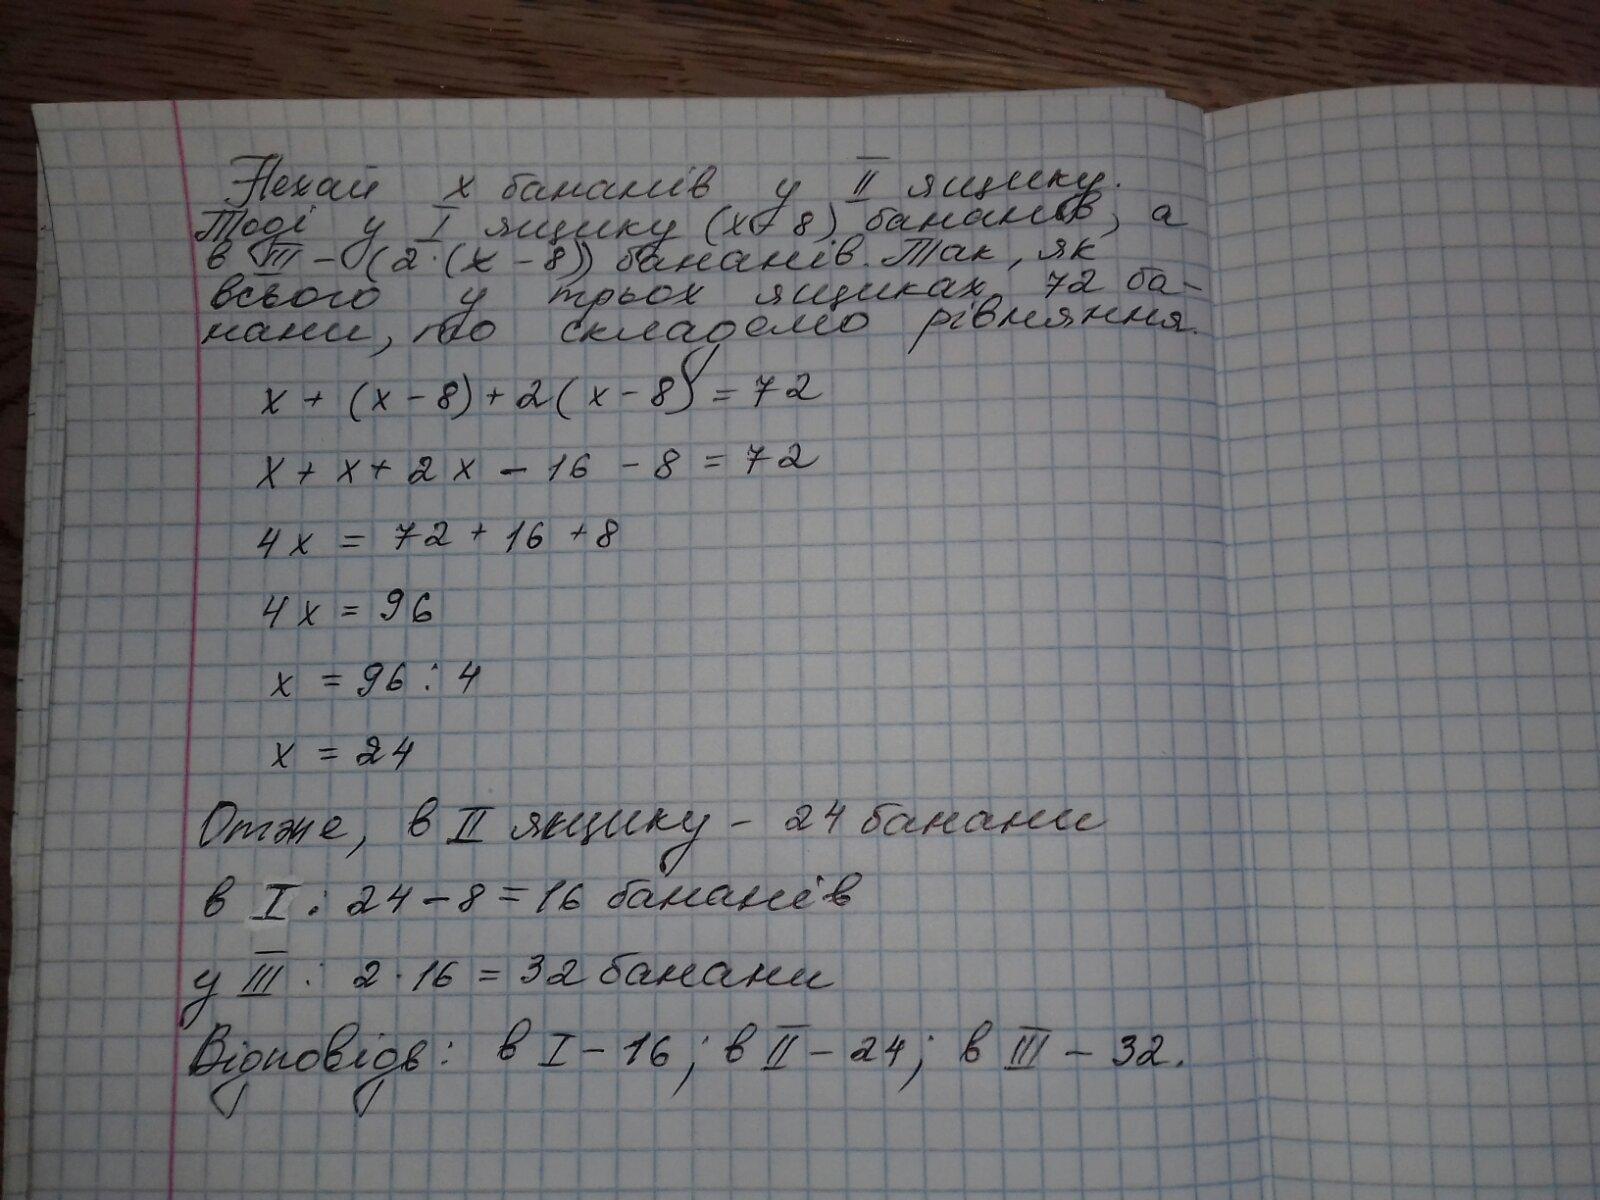 Нехай x бананів у II ящику.
Тоді у I ящику (x-8) бананів, а
в III - (2·(x-8)) бананів. Так, як
всього у трьох ящиках 72 ба-
нани, то складемо рівняння.
x + (x-8)+2(x-8)=72
x + x + 2x - 16 - 8 = 72
4x = 72 + 16 + 8
4x = 96
x = 96 : 4
x = 24
Отже, в II ящику - 24 банани
в I : 24-8=16 бананів
у III : 2·16 = 32 банани
Відповідь: в I-16; в II-24; в III-32.